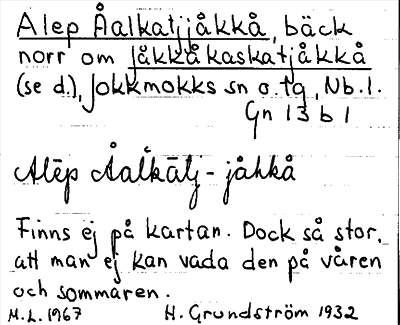 Alep Åalkatjjåkkå, bäck
norr om Jåkkåkaskatjåkkå
(se d.), Jokkmokks sn o. tg, Nb. l.
Gn 13 b 1
Alēp Åalkātj-jåhkå
Finns ej på kartan. Dock så stor,
att man ej kan vada den på våren
och sommaren.
H. L. 1967 H. Grundström 1932